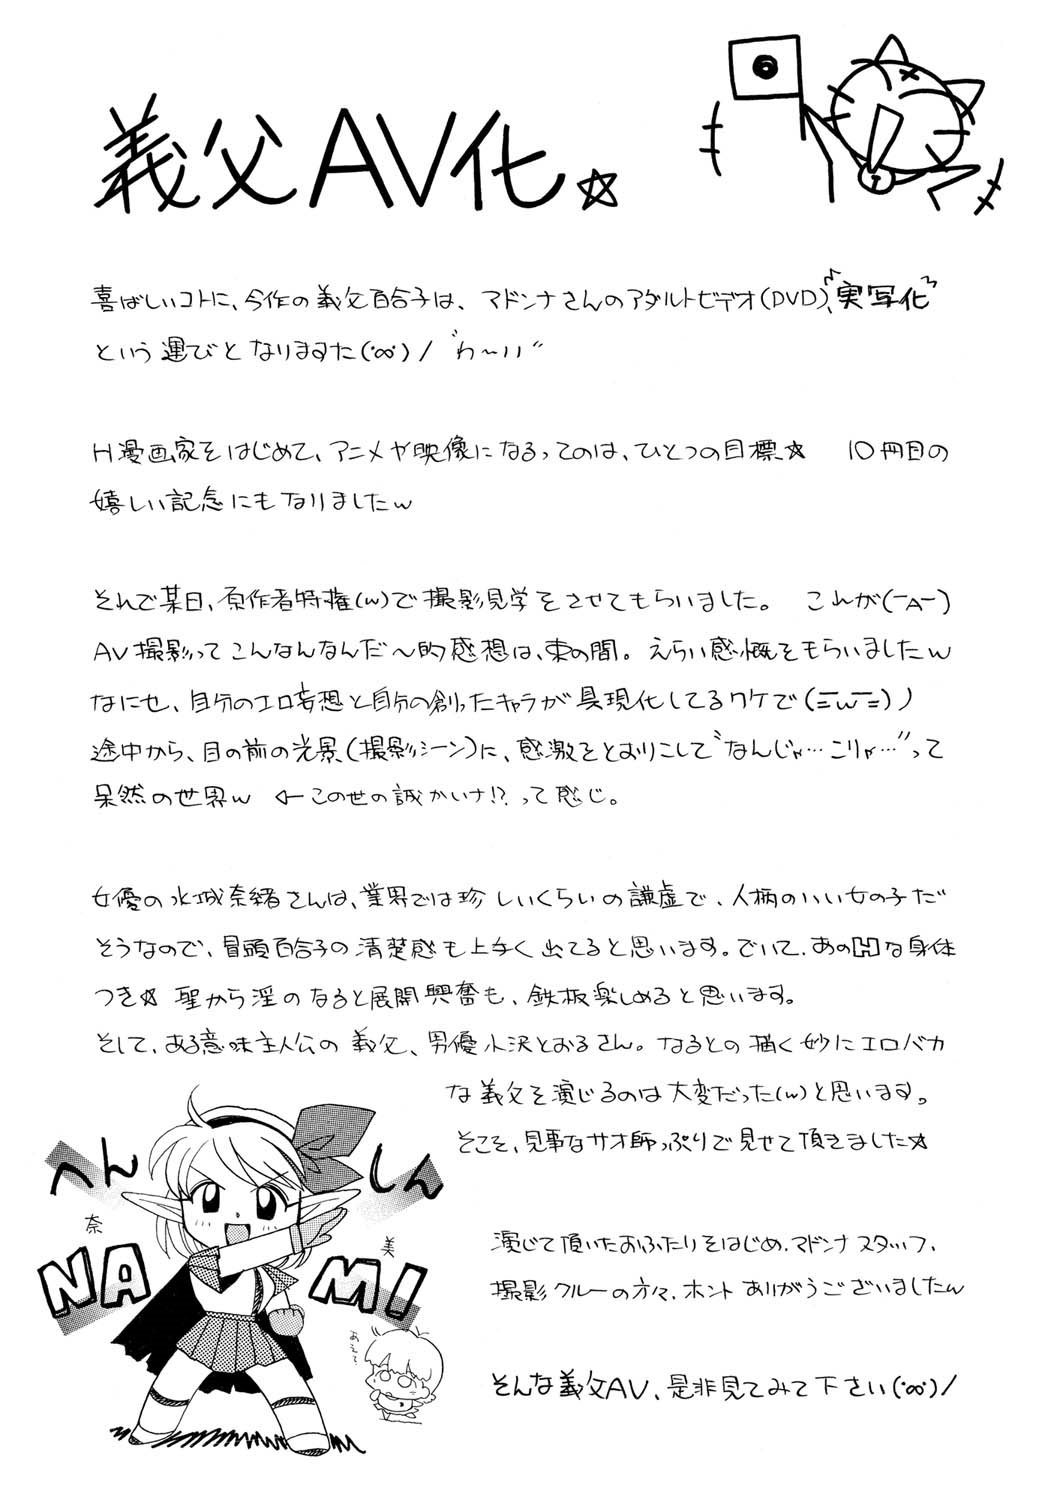 義父AV化☆
喜ばしいコトに、今作の義父百合子は、マドンナさんのアダルトビデオ(DVD)、"実写化"
という運びとなりますた(°∞°)/ "わ～い"
H漫画家をはじめて、アニメや映像になるってのは、ひとつの目標☆ 10冊目の
嬉しい記念にもなりましたw
それで某日、原作者特権(w)で撮影見学をさせてもらいました。 これが(￣A￣)
AV撮影ってこんなんなんだ～的感想は、束の間。えらい感慨をもらいましたw
なにせ、自分のエロ妄想と自分の創ったキャラが具現化してるワケで(=w=)ノ
途中から、目の前の光景(撮影シーン)に、感激をとおりこして"なんじゃ…こりゃ…"って
呆然の世界w ←この世の誠かいナ!?って感じ。
女優の水城奈緒さんは、業界では珍しいくらいの謙虚で、人柄のいい女の子だ
そうなので、冒頭百合子の清楚感も上手く出てると思います。でいて、あのHな身体
つき☆ 聖から淫のなると展開興奮も、鉄板楽しめると思います。
そして、ある意味主人公の義父、男優小沢とおるさん。なるとの描く妙にエロバカ
な義父を演じるのは大変だった(w)と思います。
そこそ、見事なサオ師っぷりで見せて頂きました☆
演じて頂いたおふたりをはじめ、マドンナスタッフ、
撮影クルーの方々、ホントありがうございましたw
そんな義父AV、是非見てみて下さい(°∞°)/
へんしん
奈 美
NAMI
あえて?